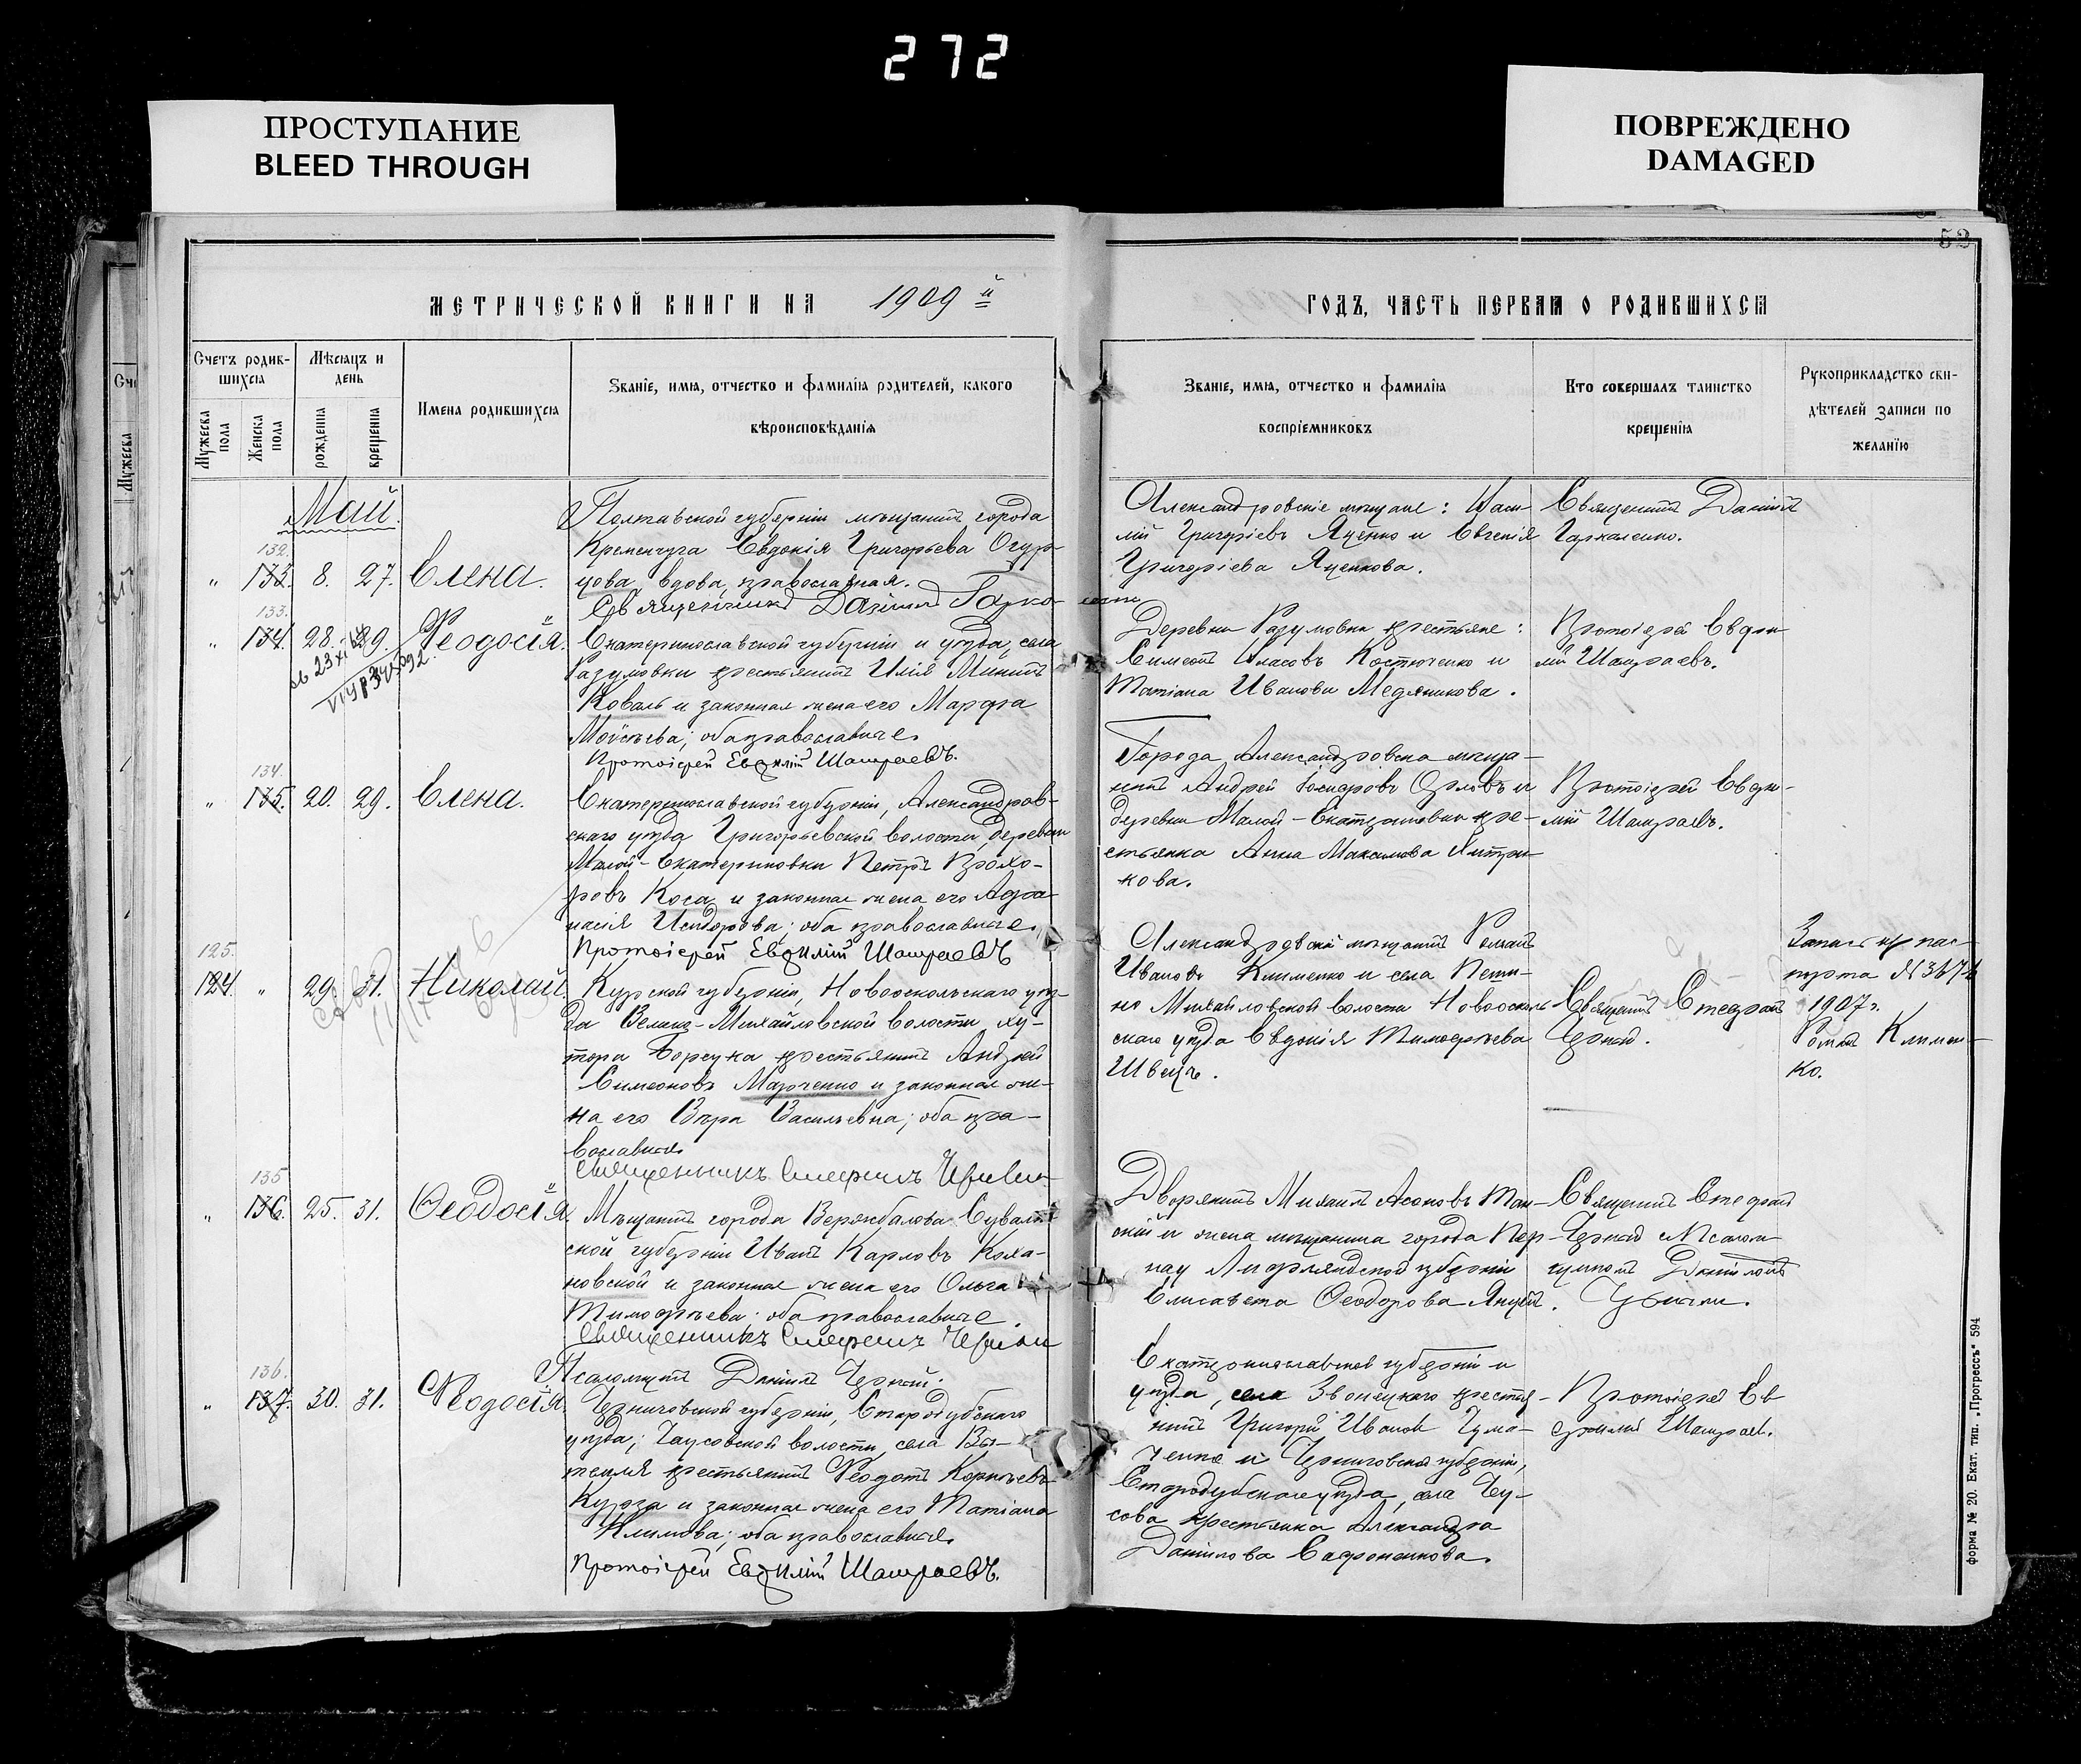 272
ПРОСТУПАНИЕ
BLEED THROUGH
ПОВРЕЖДЕНО
DAMAGED
52
МЕТРИЧЕСКОЙ КНИГИ НА 1909 й
ГОДЪ, ЧАСТЬ ПЕРВАЯ О РОДИВШИХСЯ
Счетъ родив-
шихся
Мужеска пола
Женска пола
Мѣсяцъ и
день
рожденія
крещенія
Имена родившихся
Званіе, имя, отчество и фамилія родителей, какого
вѣроисповѣданія
Званіе, имя, отчество и фамилія
воспріемниковъ
Кто совершалъ таинство
крещенія
Рукоприкладство сви-
дѣтелей записи по
желанію
Май.
132.
" 133. 8. 27. Елена.
Полтавской губерніи мѣщанинъ города
Кременчуга Евдокія Григорьева Огур-
цова, вдова, православная.
Священникъ Даніилъ Гарка-
Александровскіе мѣщане:
Григоріевъ Яценко и Евгенія
Григоріева Яценкова.
Священникъ Даніилъ
133.
" 134. 28. 29. Ѳеодосія.
Екатеринославской губерніи и уѣзда, села
Разумовки крестьянинъ Илія Мининъ
Коваль и законная жена его Марфа
Мойсѣева; оба православные.
Протоіерей Евфимій Шатраевъ.
Деревни Разумовки крестьяне:
Симеонъ Власовъ Костюченко и
Татіана Иванова Медяникова.
Протоіерей Евфи-
мій Шатраевъ.
134.
" 135. 20. 29. Елена.
Екатеринославской губерніи, Александров-
скаго уѣзда Григорьевской волости, деревни
Малой-Екатериновки Петръ Прохо-
ровъ Коса и законная жена его Афа-
насія Исидорова; оба православные.
Протоіерей Евфимій Шатраевъ
Города Александровска мѣща-
нинъ Андрей Орловъ и
деревни Малой-Екатериновки кре-
стьянка Анна Максимова
кова.
Протоіерей Евфи-
мій Шатраевъ.
125.
124. " 29. 31. Николай.
Курской губерніи, Новооскольскаго уѣз-
да Велико-Михайловской волости ху-
тора крестьянинъ Андрей
Симеоновъ Марченко и законная же-
на его Вѣра Васильевна; оба пра-
вославные.
Священникъ Стефанъ Черный
Александровскій мѣщанинъ Романъ
Ивановъ Клименко и села
Михайловской волости Новоосколь-
скаго уѣзда Евдокія Тимофѣева
Швецъ.
Священникъ Стефанъ
Черный.
Запись пас-
порта №
1907 г.
Романъ Климен-
ко.
135
" 136. 25. 31. Ѳеодосія.
Мѣщанинъ города Вержболова Сувалк-
ской губерніи Иванъ Карловъ Коха-
новской и законная жена его Ольга
Тимофѣева; оба православные.
Священникъ Стефанъ Черный
Псаломщикъ Даніилъ Черный.
Дворянинъ Михаилъ
скій и жена мѣщанина города Пер-
нау Лифляндской губерніи
Елисавета Ѳеодорова
Священникъ Стефанъ
Черный съ Псалом-
щикомъ Даніиломъ
136.
" 137. 30. 31. Ѳеодосія.
Черниговской губерніи, Стародубскаго
уѣзда, Чаусовской волости, села
крестьянинъ Ѳеодотъ Корнѣевъ
и законная жена его Татіана
Климова; оба православные.
Протоіерей Евфимій Шатраевъ.
Екатеринославской губерніи и
уѣзда, села Звонецкаго крестья-
нинъ Григорій Ивановъ Чума-
ченко и Черниговской губерніи,
Стародубскаго уѣзда, села Чау-
сова крестьянка Александра
Даніилова Сафоненкова.
Протоіерей Ев-
фимій Шатраевъ.
форма № 20. Екат. тип. „Прогрессъ" 594